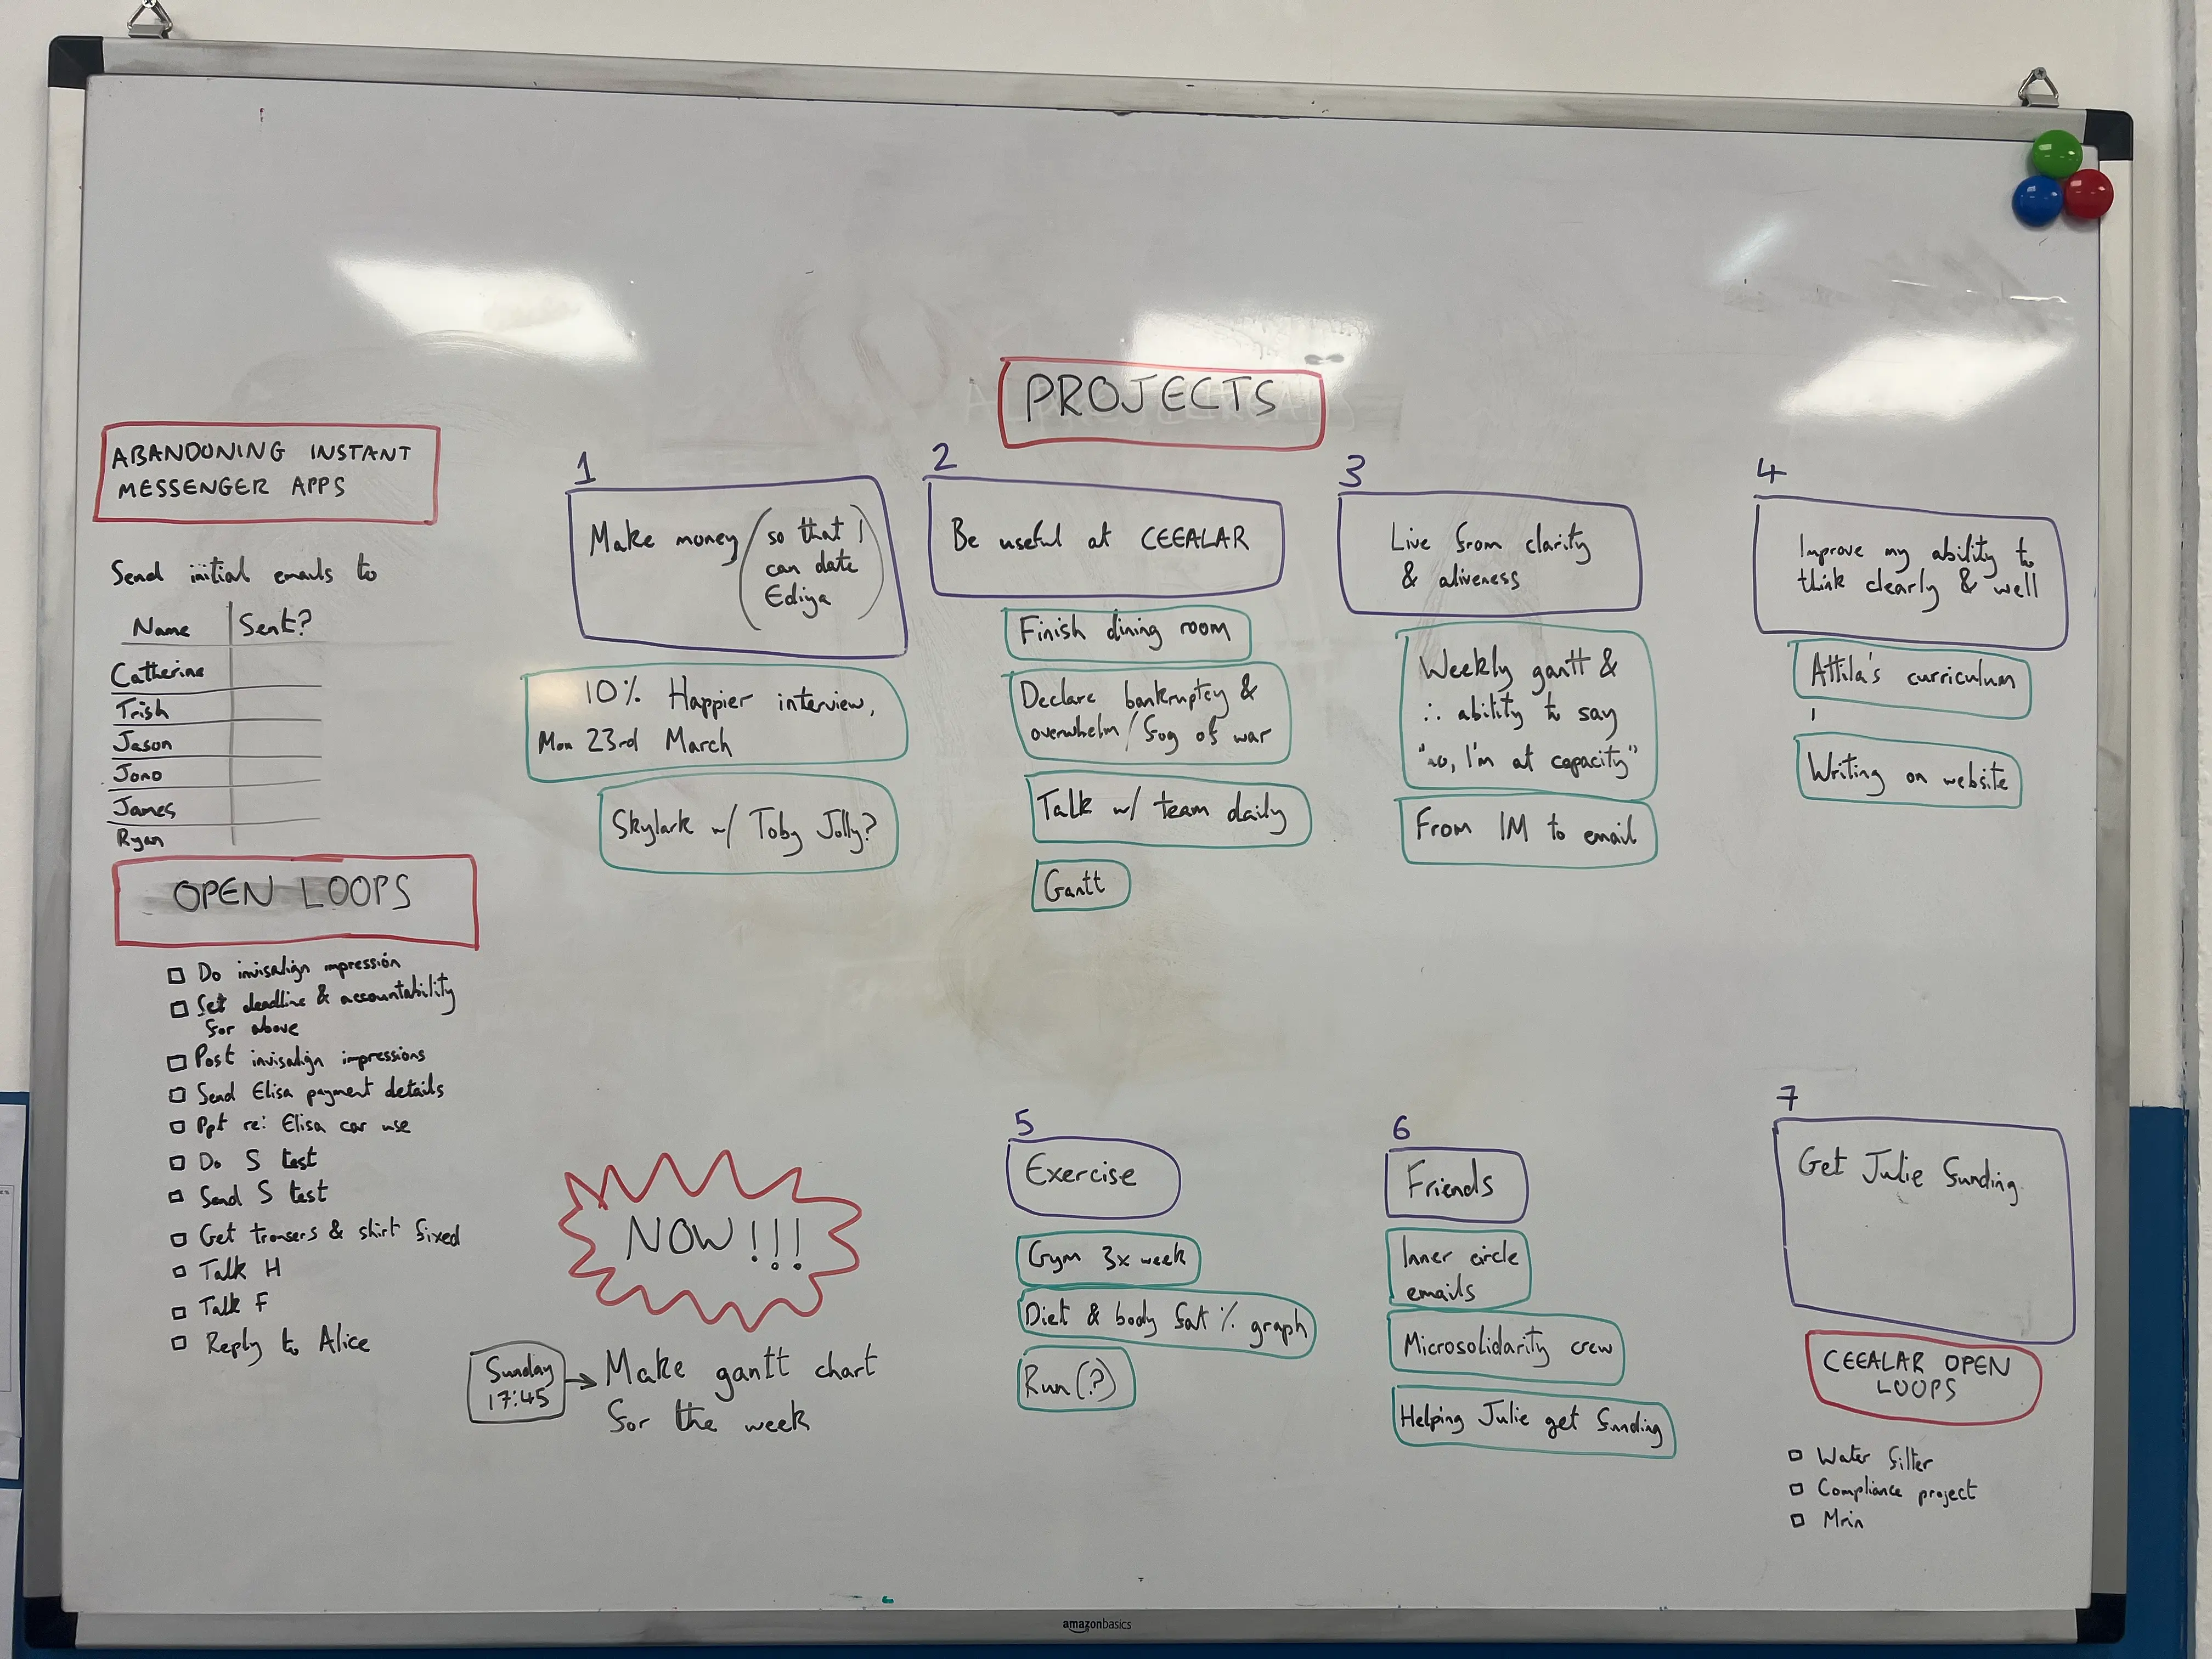 PROJECTS
ABANDONING INSTANT
MESSENGER APPS
Send initial emails to
Name Sent?
Catherine
Trish
Jason
Jono
James
Ryan
OPEN LOOPS
Do invisalign impression
Set deadline & accountability
for above
Post invisalign impressions
Send Elisa payment details
Ppt re: Elisa car use
Do S test
Send S test
Get trousers & shirt fixed
Talk H
Talk F
Reply to Alice
1
Make money (so that I
can date
Ediya)
10% Happier interview,
Mon 23rd March
Skylark w/ Toby Jolly?
2
Be useful at CEEALAR
Finish dining room
Declare bankruptcy &
overwhelm/fog of war
Talk w/ team daily
Gantt
3
Live from clarity
& aliveness
Weekly gantt &
∴ ability to say
"no, I'm at capacity"
From IM to email
4
Improve my ability to
think clearly & well
Attila's curriculum
Writing on website
NOW!!!
Sunday
17:45
→ Make gantt chart
for the week
5
Exercise
Gym 3x week
Diet & body fat % graph
Run(?)
6
Friends
Inner circle
emails
Microsolidarity crew
Helping Julie get funding
7
Get Julie funding
CEEALAR OPEN
LOOPS
Water filter
Compliance project
Mrin
amazonbasics